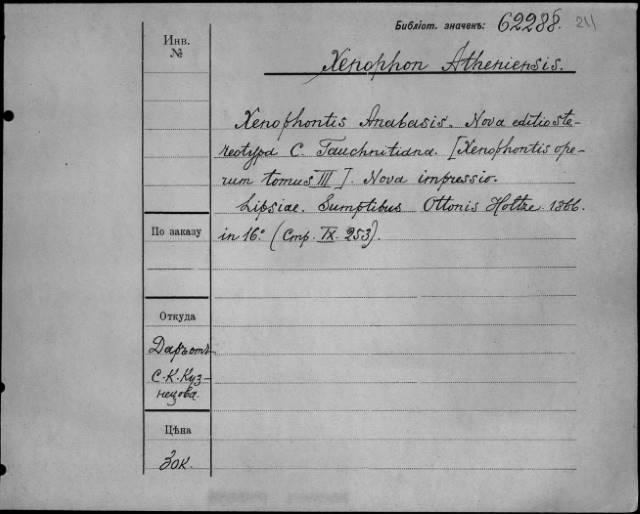 Библіот. значекъ: 62288 211
Инв.
№
Xenophon Atheniensis.
Xenophontis Anabasis. Nova editio ste-
reotypa C. Tauchnitiana. [Xenophontis ope-
rum tomus III]. Nova impressio.
Lipsiae. Sumptibus Ottonis Holtze. 1866.
in 16.° (Стр. IX. 253).
По заказу
Откуда
Даръ отъ
С. К. Куз-
нецова.
Цѣна
30 к.